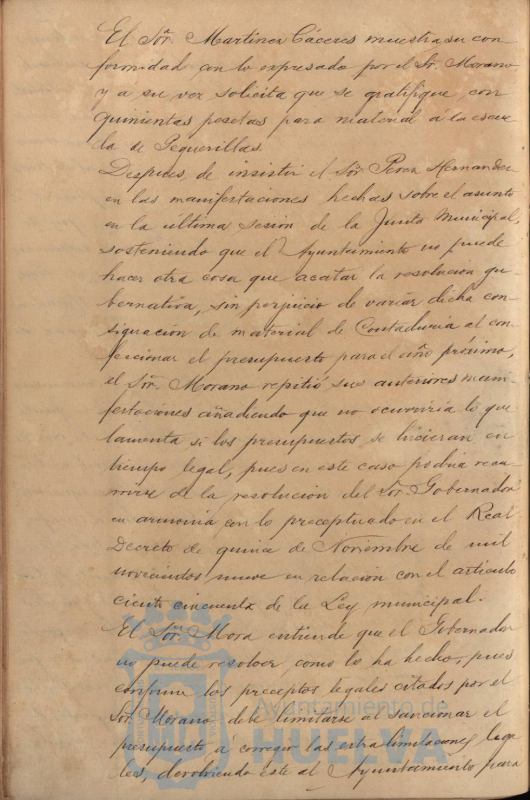 El Sor. Martinez Cáceres muestra su con
formidad con lo expresado por el Sr. Morano
y a su vez solicita que se gratifique con
quinientas pesetas para material á la escue
la de Peguerillas.
Despues de insistir el Sor. Perez Hernandez
en las manifestaciones hechas sobre el asunto
en la última sesion de la Junta Municipal,
sosteniendo que el Ayuntamiento no puede
hacer otra cosa que acatar la resolución gu
bernativa, sin perjuicio de variar dicha con
signación de material de Contaduria al con
feccionar el presupuesto para el año próximo,
el Sor. Morano repitió sus anteriores mani
festaciones añadiendo que no ocurriria lo que
lamenta si los presupuestos se hicieran en
tiempo legal, pues en este caso podria recu
rrirse de la resolución del Sor. Gobernador
en armonia con lo preceptuado en el Real
Decreto de quince de Noviembre de mil
novecientos nueve en relación con el articulo
ciento cincuenta de la Ley municipal.
El Sor. Mora entiende que el Gobernador
no puede resolver como lo ha hecho, pues
conforme los preceptos legales citados por el
Sor. Morano debe limitarse al sancionar el
presupuesto á corregir las extralimitaciones lega
les, devolviendo éste al Ayuntamiento para
Ayuntamiento de
HUELVA